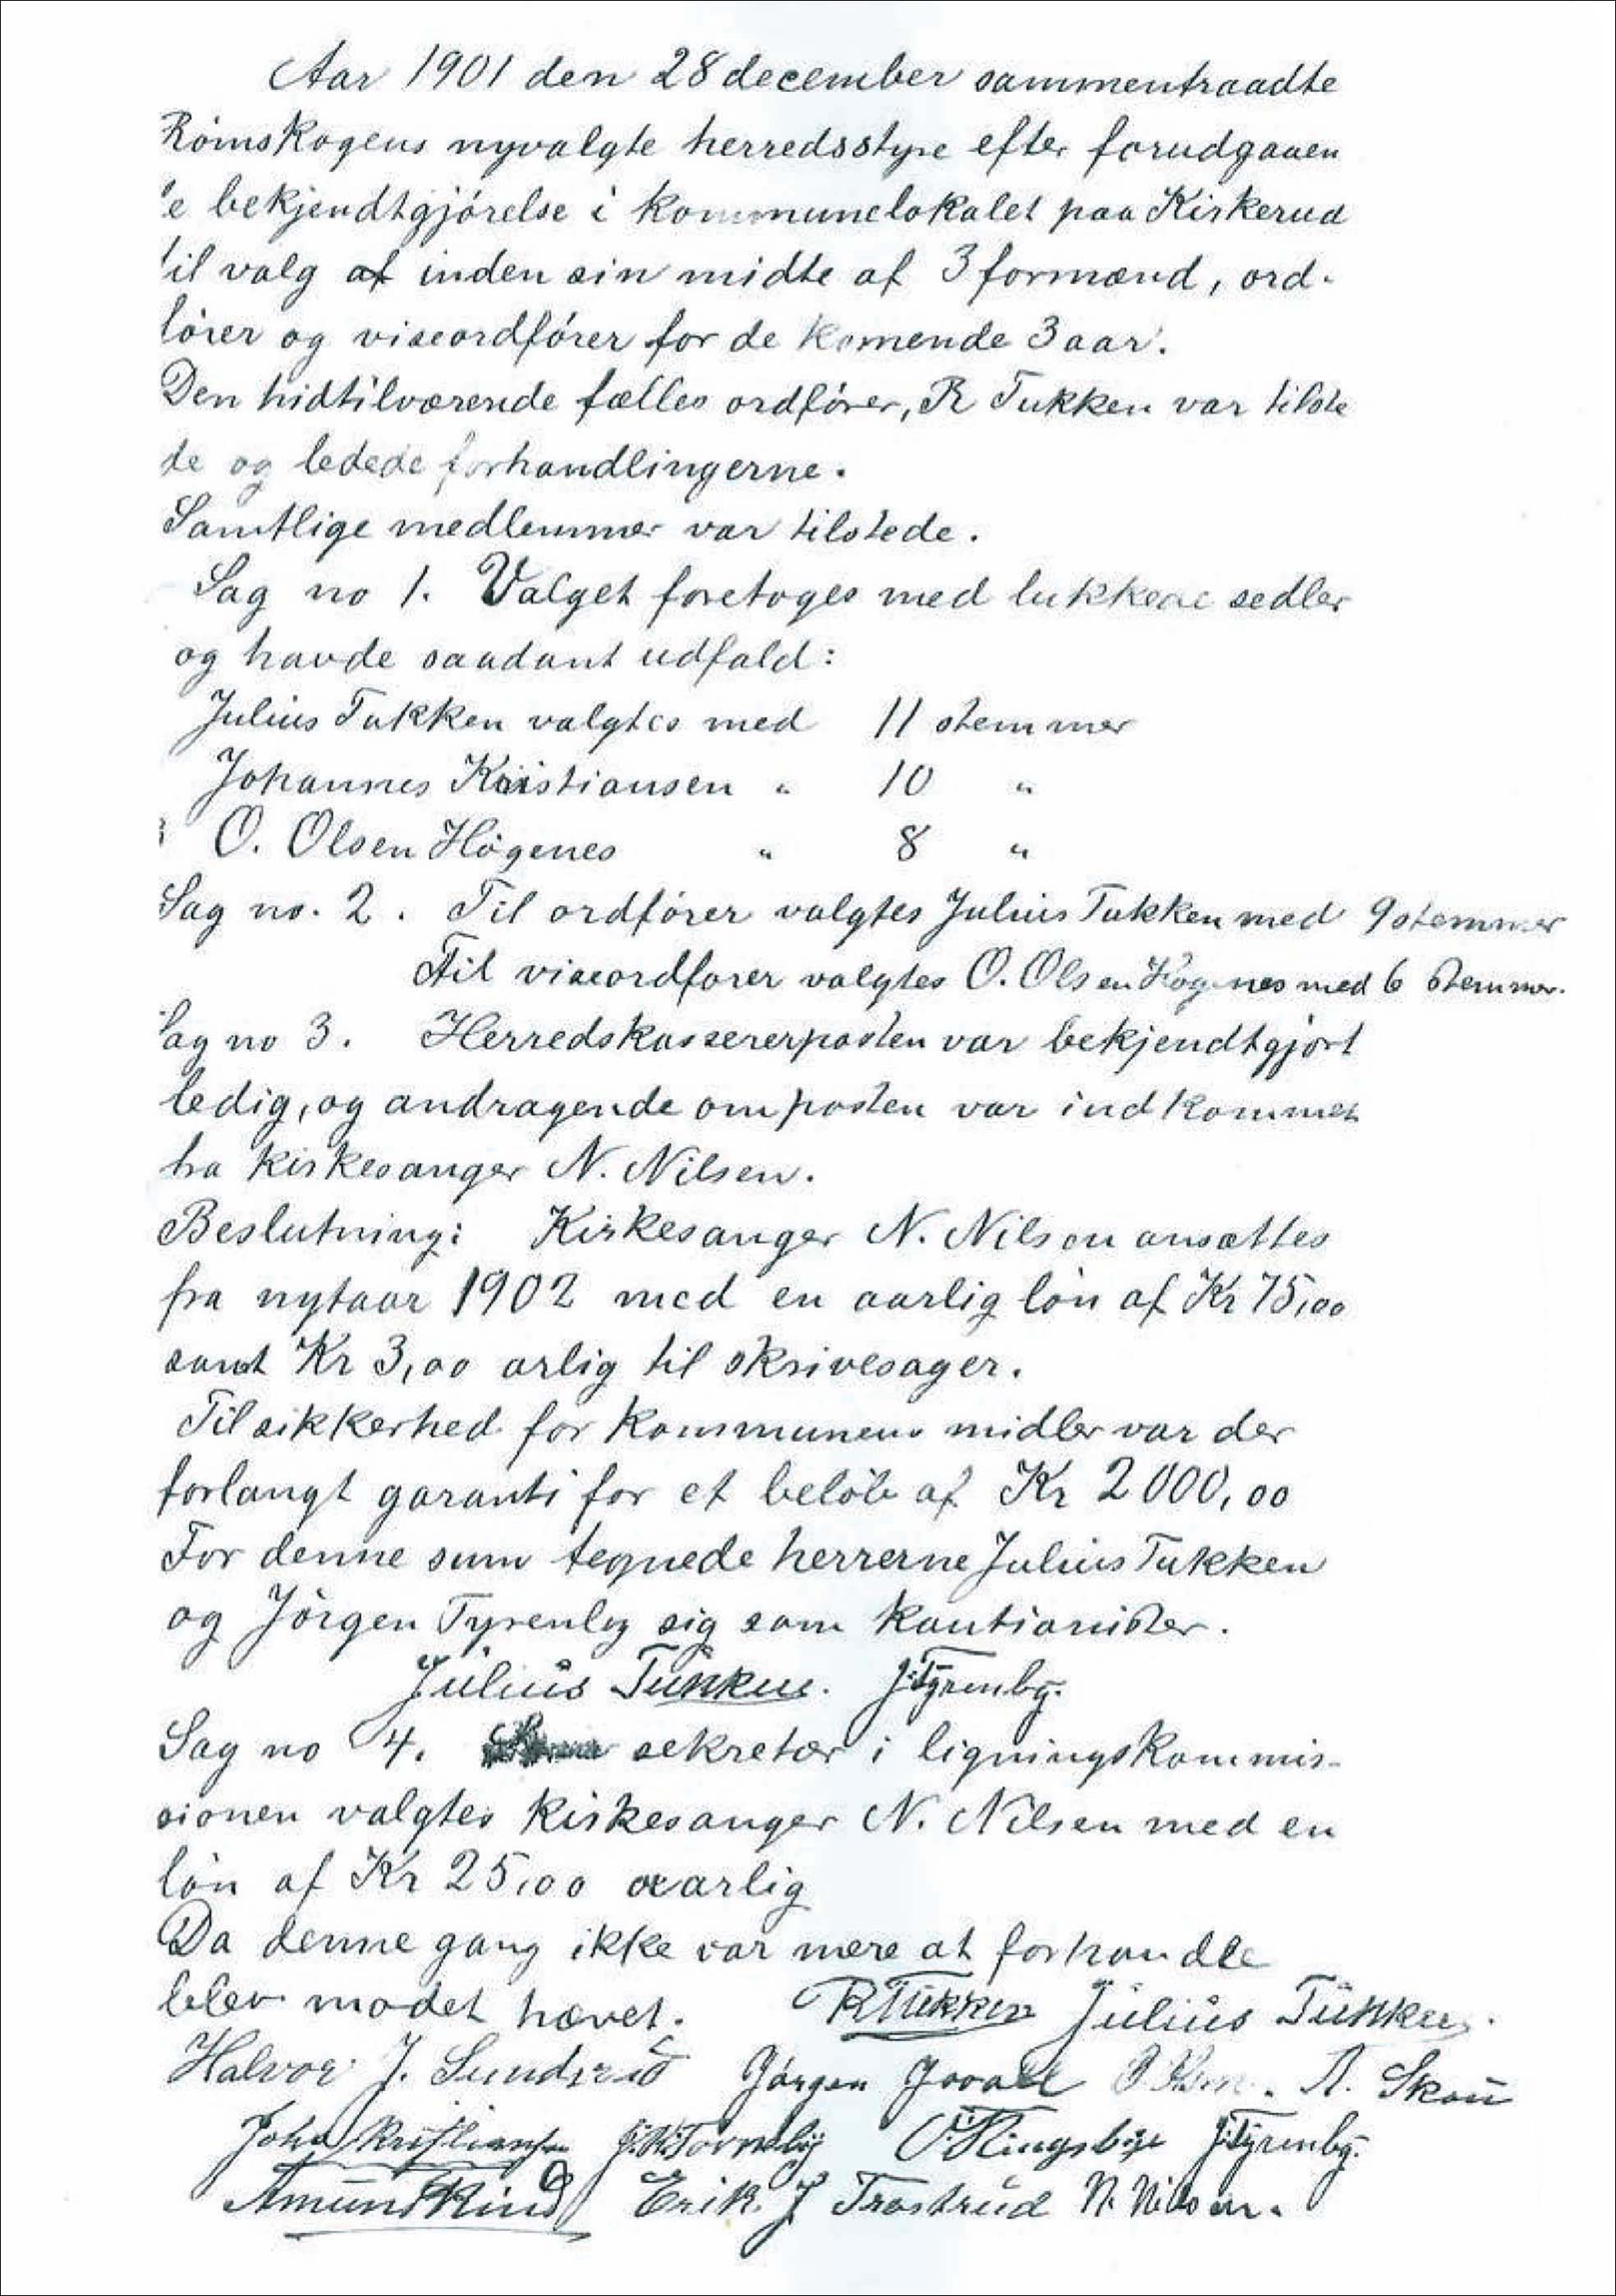 Aar 1901 den 28 december sammentraadte
Römskogens nyvalgte herredsstyre efter forudgaaen
e bekjendtgjörelse i kommunelokalet paa Kirkerud
til valg af inden sin midte af 3 formænd, ord-
förer og viseordförer for de komende 3 aar.
Den hidtilværende fælles ordförer, R Tukken var tilste
de og ledede forhandlingerne.
Samtlige medlemmer var tilstede.
Sag no 1. Valget foretoges med lukkede sedler
og havde saadant udfald:
Julius Tukken valgtes med 11 stemmer
Johannes Kristiansen " 10 "
O. Olsen Högenes " 8 "
Sag no. 2. Til ordförer valgtes Julius Tukken med 9 stemmer
Til viseordförer valgtes O. Olsen Högenes med 6 stemmer.
Sag no 3. Herredskassererposten var bekjendtgjört
ledig, og andragende om posten var indkommet
fra kirkesanger N. Nilsen.
Beslutning: Kirkesanger N. Nilsen ansættes
fra nytaar 1902 med en aarlig lön af Kr 75,00
samt Kr 3,00 arlig til skrivesager.
Til sikkerhed for kommunens midler var der
forlangt garanti for et belöb af Kr 2000,00
For denne sum tegnede herrerne Julius Tukken
og Jörgen Tyrenby sig som kautionister.
Julius Tukken. J. Tyrenby.
Sag no 4. sekretær i ligningskommis-
sionen valgtes kirkesanger N. Nilsen med en
lön af Kr 25,00 aarlig
Da denne gang ikke var mere at forhandle
blev mödet hævet. R Tukken Julius Tukken.
Halvor J. Sundsrud Jörgen A. Skou
Joha Kristiansen J. Tyrenby.
Erik J Trostrud N. Nilsen.